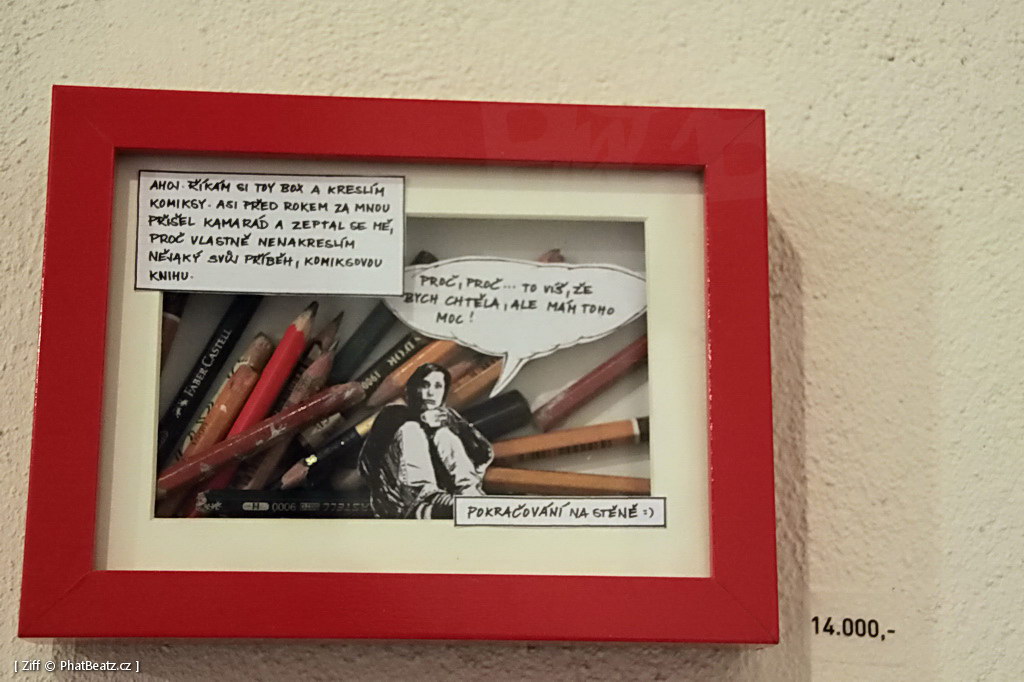 AHOJ. ŘÍKÁM SI TOY BOX A KRESLÍM
KOMIKSY. ASI PŘED ROKEM ZA MNOU
PŘIŠEL KAMARÁD A ZEPTAL SE MĚ,
PROČ VLASTNĚ NENAKRESLÍM
NĚJAKÝ SVŮJ PŘÍBĚH, KOMIKSOVOU
KNIHU.
PROČ, PROČ... TO VÍŠ, ŽE
BYCH CHTĚLA, ALE MÁM TOHO
MOC!
FABER CASTELL
D'OR
1900
H 0006
POKRAČOVÁNÍ NA STĚNĚ :)
14.000,-
[ Ziff © PhatBeatz.cz ]